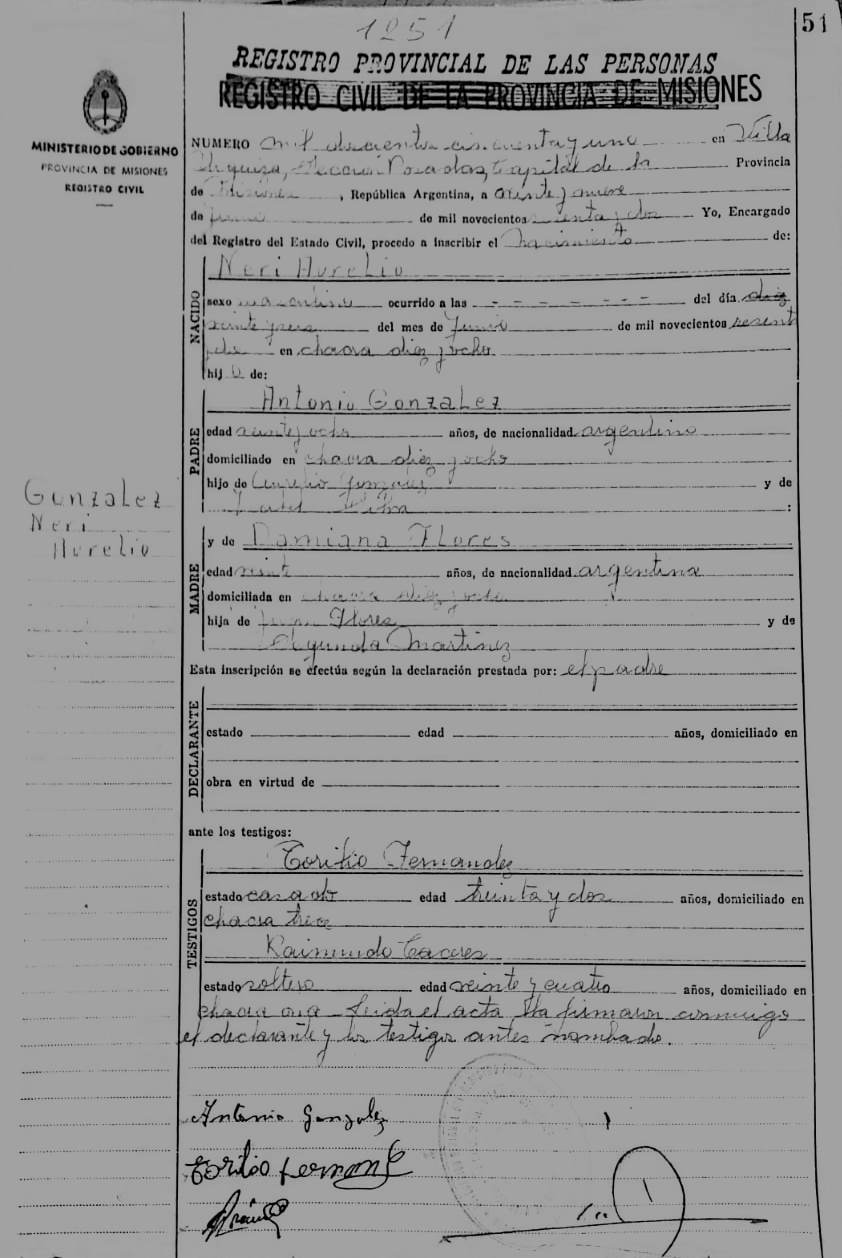 1251
51
REGISTRO PROVINCIAL DE LAS PERSONAS
REGISTRO CIVIL DE LA PROVINCIA DE MISIONES
MINISTERIO DE GOBIERNO
PROVINCIA DE MISIONES
REGISTRO CIVIL
NUMERO mil doscientos cincuenta y uno en Villa
Urquiza, Posadas, Capital de la Provincia
de Misiones, República Argentina, a veinte y nueve
de junio de mil novecientos sesenta y dos Yo, Encargado
del Registro del Estado Civil, procedo a inscribir el nacimiento de:
NACIDO
Neri Aurelio
sexo masculino ocurrido a las - - - - - - - del día diez
veinte y de mes de Junio de mil novecientos sesent
y dos en chacra diez y ocho
hijo de:
PADRE
Antonio Gonzalez
edad veinte y ocho años, de nacionalidad argentino
domiciliado en chacra diez y ocho
hijo de Gonzalez y de
:
Gonzalez
Neri
Aurelio
MADRE
y de Damiana Flores
edad veinte años, de nacionalidad argentina
domiciliada en chacra diez y ocho
hija de Juan Flores y de
Segunda Martinez
Esta inscripción se efectúa según la declaración prestada por: el padre
DECLARANTE
estado edad años, domiciliado en
obra en virtud de
ante los testigos:
TESTIGOS
Toribio Fernandez
estado casado edad treinta y dos años, domiciliado en
chacra trece
Raimundo Caceres
estado soltero edad veinte y cuatro años, domiciliado en
chacra Leida el acta la firmaron conmigo
el declarante y los testigos antes nombrado.
Antonio Gonzalez
Toribio Fernand